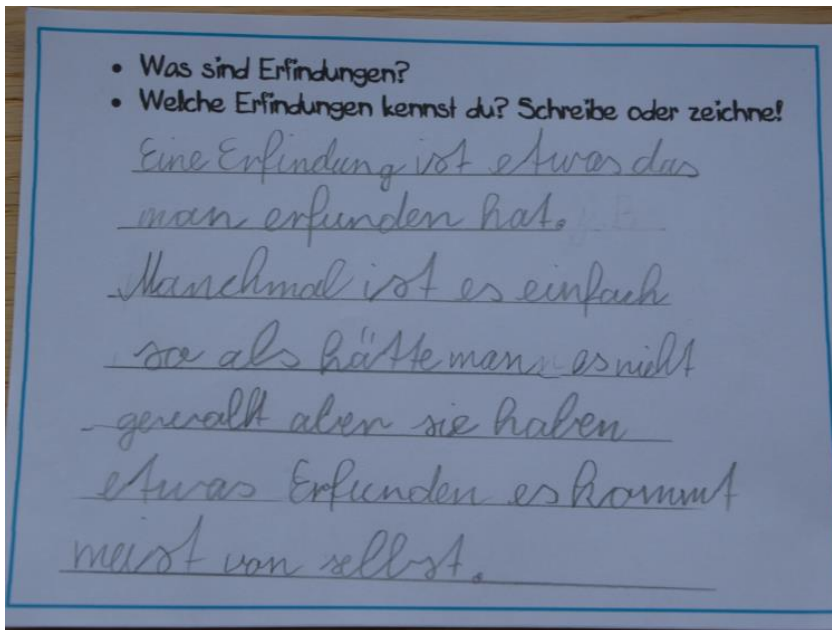 • Was sind Erfindungen?
• Welche Erfindungen kennst du? Schreibe oder zeichne!
Eine Erfindung ist etwas das
man erfunden hat.
Manchmal ist es einfach
so als hätte man es nicht
gewollt aber sie haben
etwas Erfunden es kommt
meist von selbst.